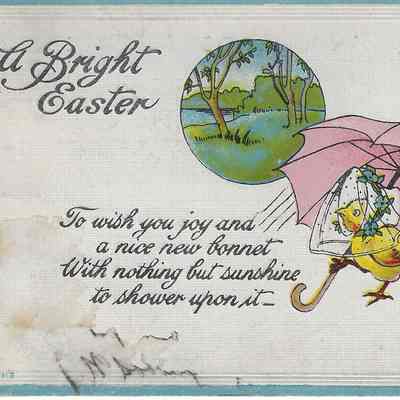 A Bright
Easter
To wish you joy and
a nice new bonnet
With nothing but sunshine
to shower upon it—